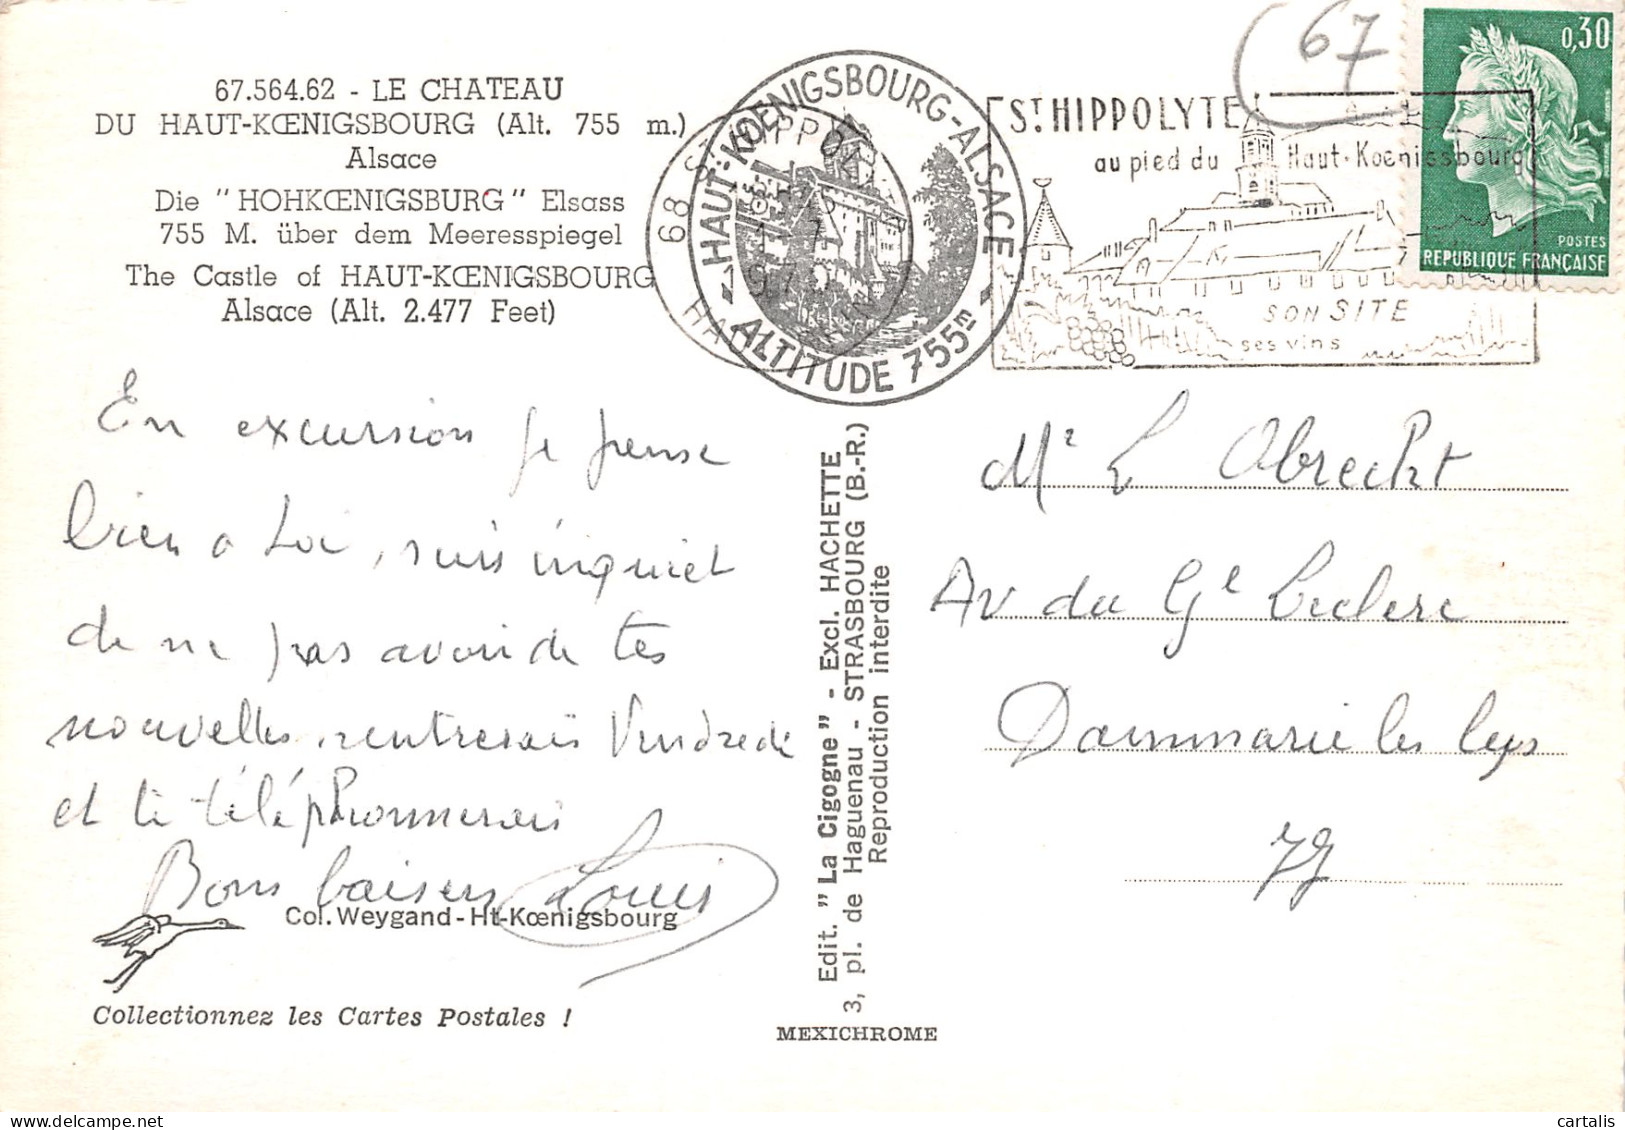 67
0,30
POSTES
REPUBLIQUE FRANÇAISE
67.564.62 - LE CHATEAU
DU HAUT-KŒNIGSBOURG (Alt. 755 m.)
Alsace
Die "HOHKŒNIGSBURG" Elsass
755 M. über dem Meeresspiegel
The Castle of HAUT-KŒNIGSBOURG
Alsace (Alt. 2.477 Feet)
HAUT-KOENIGSBOURG-ALSACE
ALTITUDE 755m
68 ST HIPPOLYTE
HAUT RHIN
ST HIPPOLYTE
au pied du Haut-Koenigsbourg
SON SITE
ses vins
En excursion je pense
bien a toi, suis inquiet
de ne pas avoir de tes
nouvelles, rentrerais Vendredi
et te téléphonnerais
Bons baisers Louis
Col. Weygand - Ht-Kœnigsbourg
Collectionnez les Cartes Postales !
Edit. "La Cigogne" - Excl. HACHETTE
3, pl. de Haguenau - STRASBOURG (B.-R.)
Reproduction interdite
MEXICHROME
Mr L Obrecht
Av du Gl Leclerc
Dammarie les Lys
77
cartalis